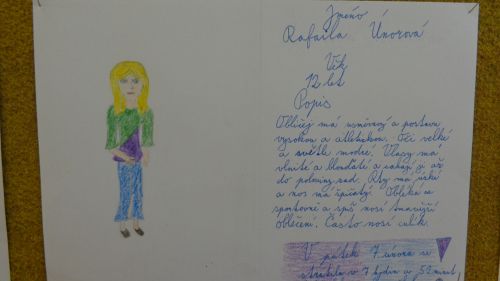 Jméno
Rafaila Únorová
Věk
12 let
Popis
Obličej má usměvavý a postavu
vysokou a atletickou. Oči velké
a světle modré. Vlasy má
vlnité a blonďaté a sahají jí až
do poloviny zad. Rty má úzké
a nos má špičatý. Obléká se
sportovně a spíš nosí tmavší
oblečení. Často nosí culík.
V pátek 7. února se
ztratila v 7 hodin a 52 minut,